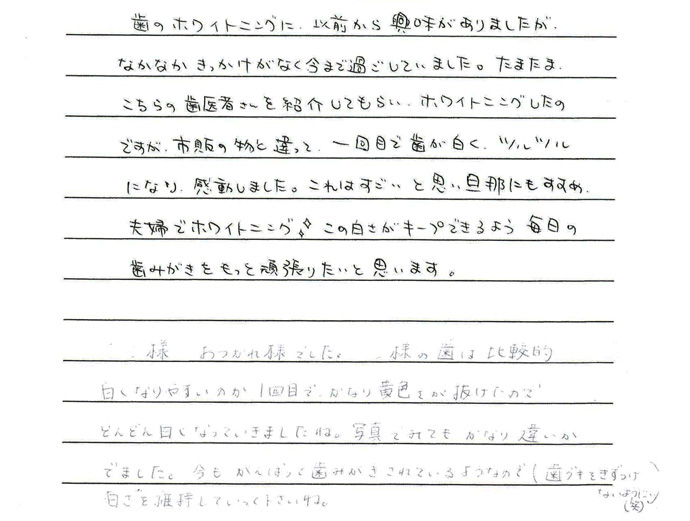 歯のホワイトニングに、以前から興味がありましたが、
なかなかきっかけがなく今まで過ごしていました。たまたま、
こちらの歯医者さんを紹介してもらい、ホワイトニングしたの
ですが、市販の物と違って、一回目で歯が白く、ツルツル
になり、感動しました。これはすごいと思い旦那にもすすめ、
夫婦でホワイトニング この白さがキープできるよう毎日の
歯みがきをもっと頑張りたいと思います。
様 おつかれ様でした。 様の歯は比較的
白くなりやすいのか1回目で、かなり黄色みが抜けたので
どんどん白くなっていきましたね。写真でみてもかなり違いが
でました。今もがんばって歯みがきされているようなので(歯グキをきずつけ
ないように!!
(笑)
白さを維持していって下さいね。